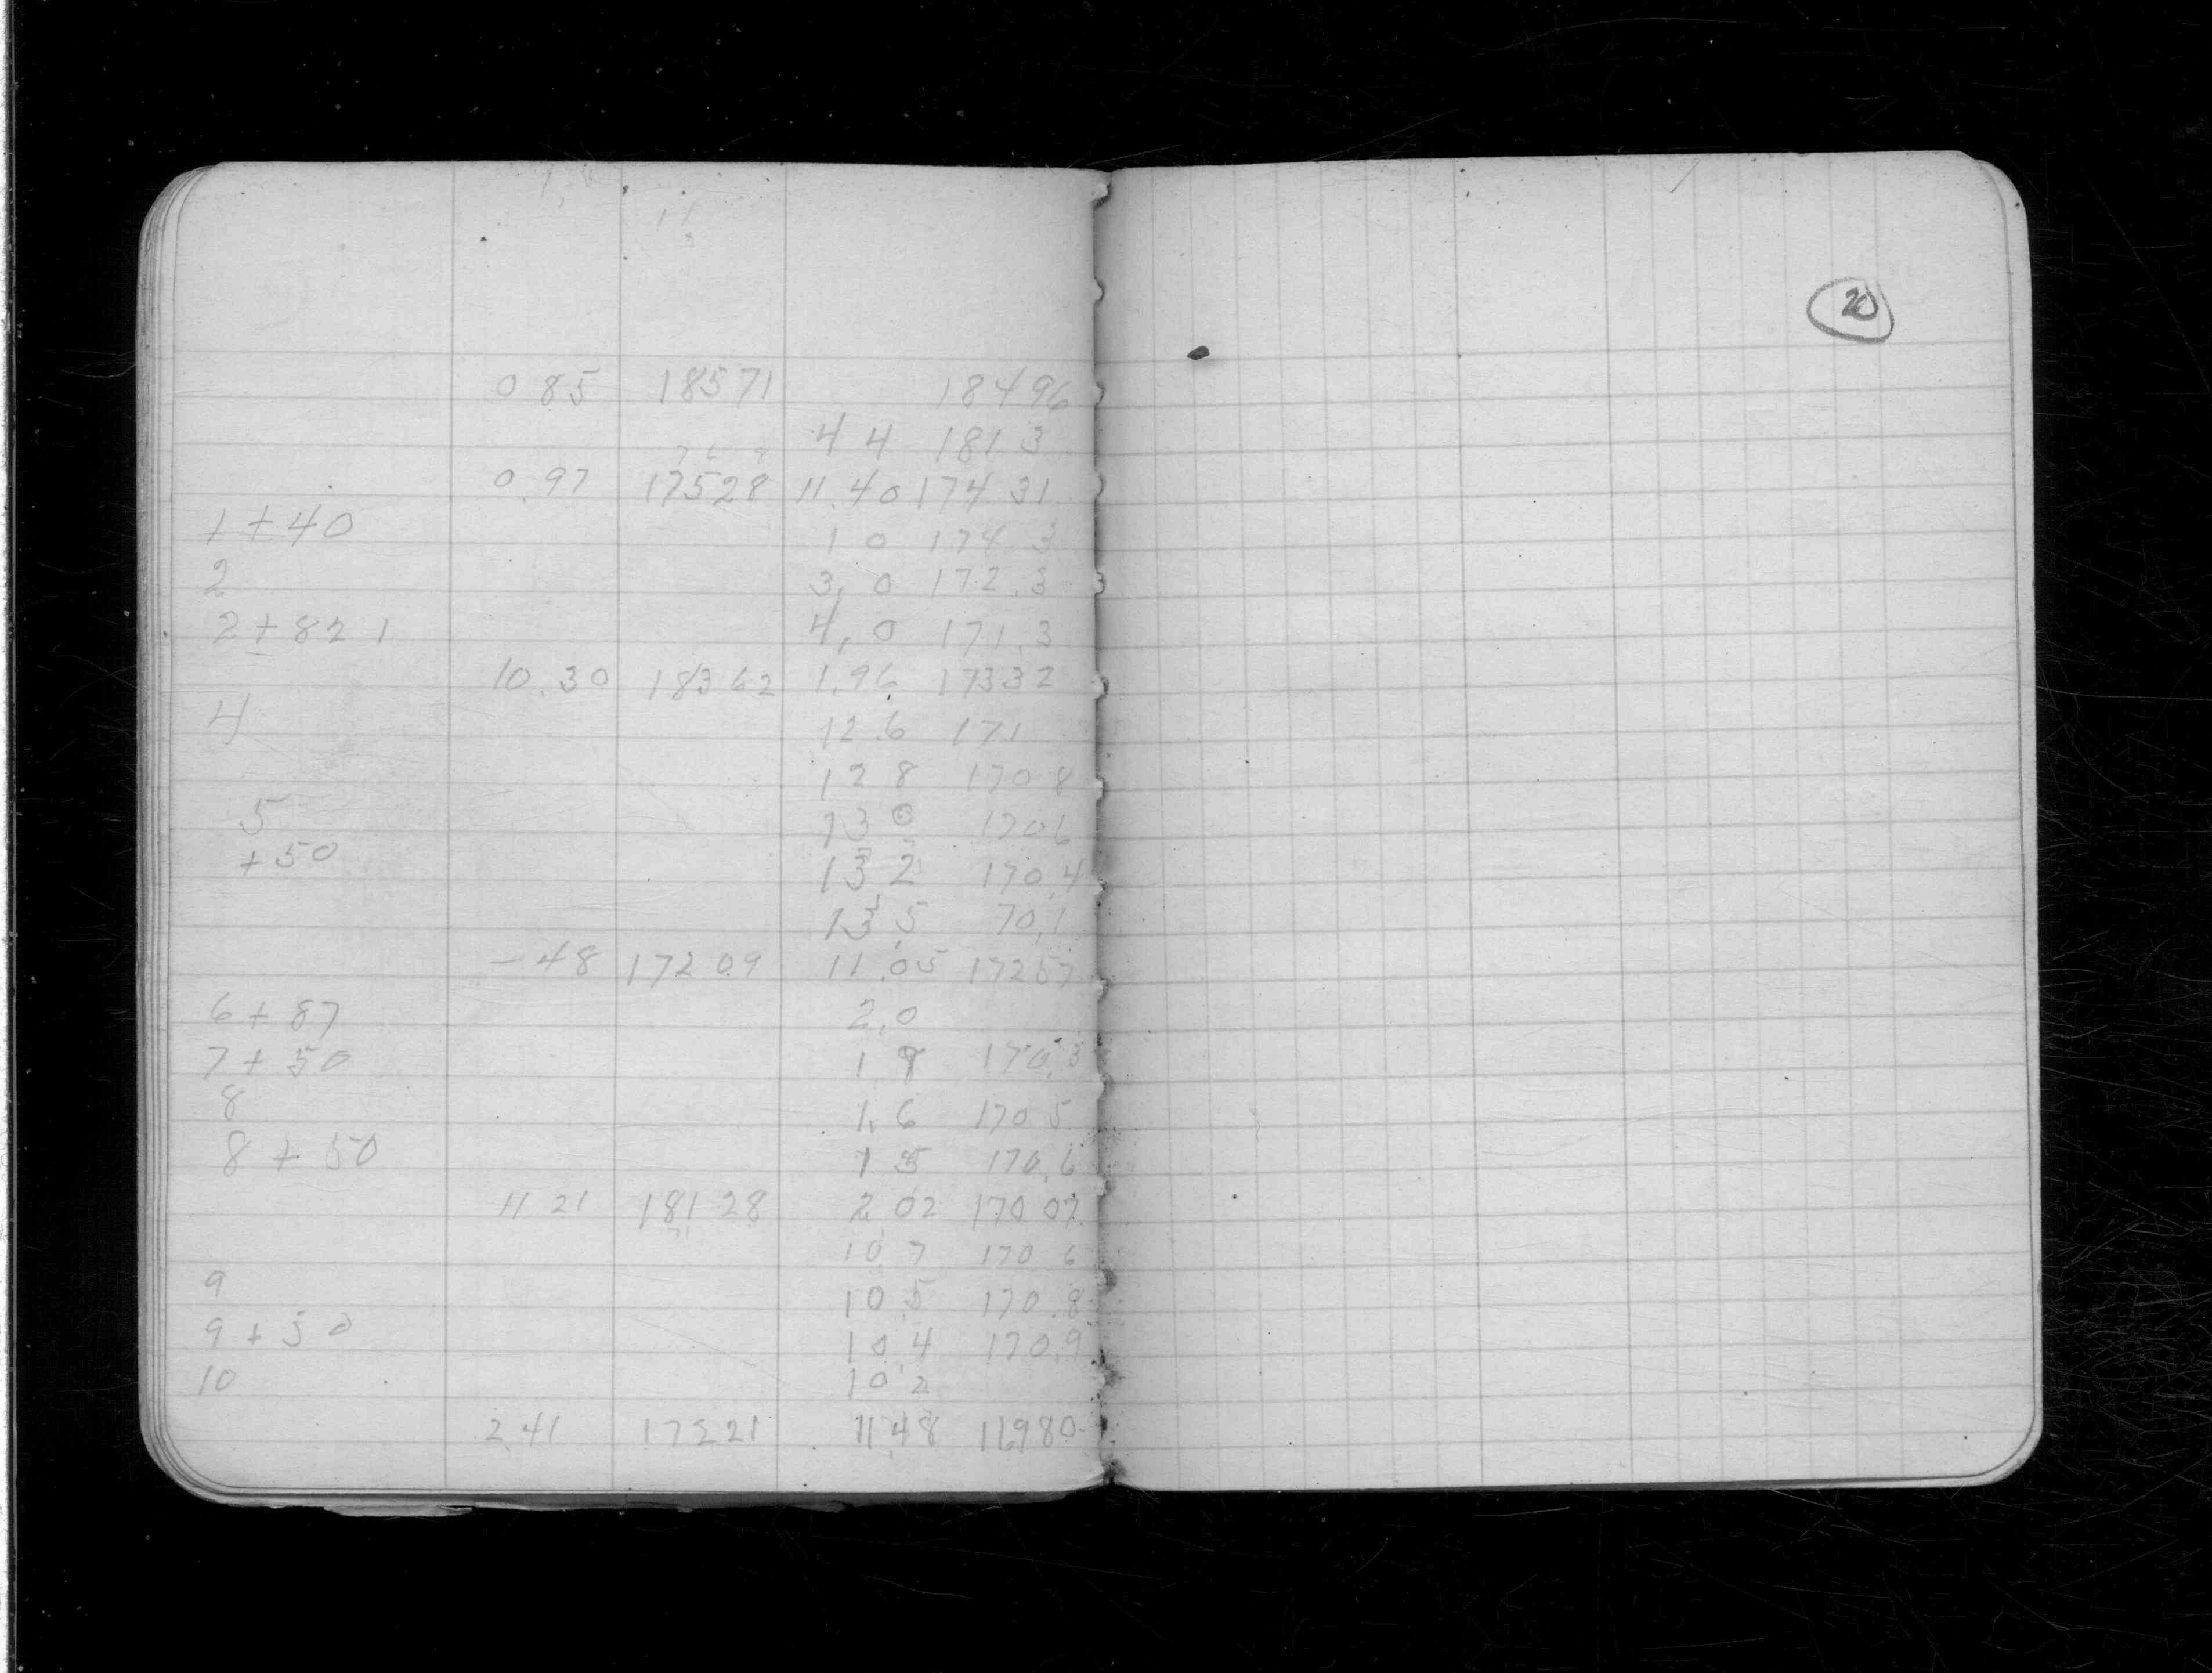 0 85 185 71 184 96
4 4 181 3
0.97 175 28 11.40 174 31
1 + 40 1 0 174 3
2 3.0 172.3
2 + 82 1 4.0 171.3
10.30 183 62 1.96 173 32
4 12.6 171
12 8 170 8
5 13 0 170 6
+ 50 13 2 170.4
13.5 70.1
- 48 172 09 11.05 172 57
6 + 87 2.0
7 + 50 1 8 170.3
8 1.6 170 5
8 + 50 1 5 170.6
11 21 181 28 2 02 170 07
10 7 170 6
9 10.5 170.8
9 + 50 10.4 170.9
10 10 2
2.41 172 21 11.48 169 80
20